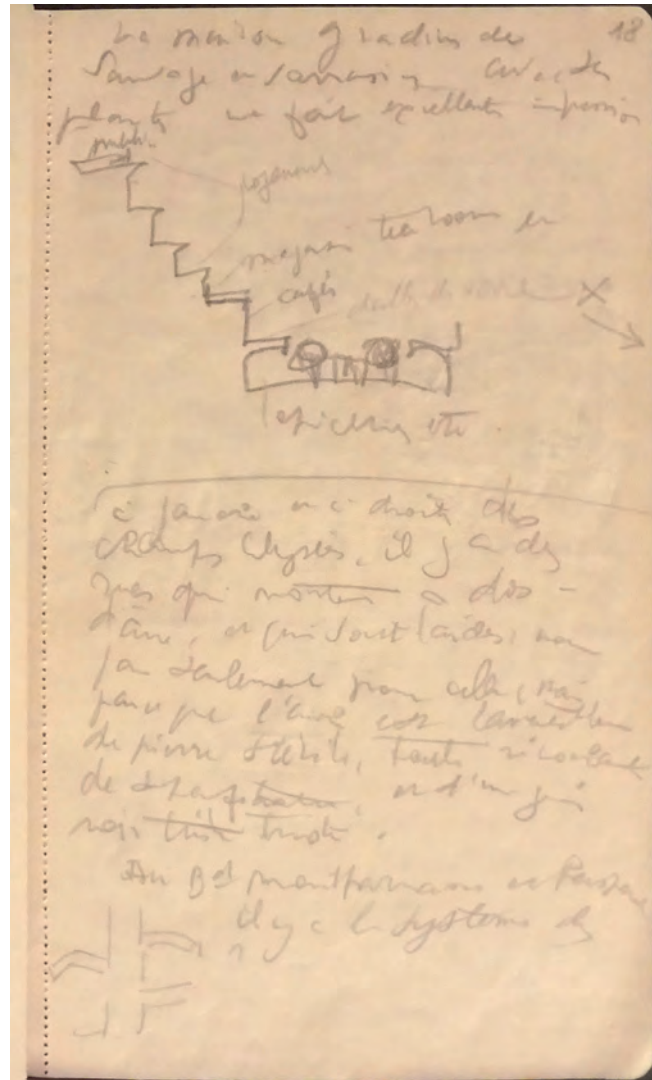 18
La maison gradins de
Sauvage et Sarrasin avec des
plants me fait excellente impression
logements
magasin tea rooms et
cafés
X
épiceries etc.
à gauche et à droite des
Champs Elysées, il y a des
rues qui montent à dos -
d'âne, et qui sont laides, non
pas seulement pour cela, mais
parce que l'âne est
de pierre stérile, toute
de et d'un gris
noir très triste.
Au Bd Montparnasse et Raspail
il y a le système des